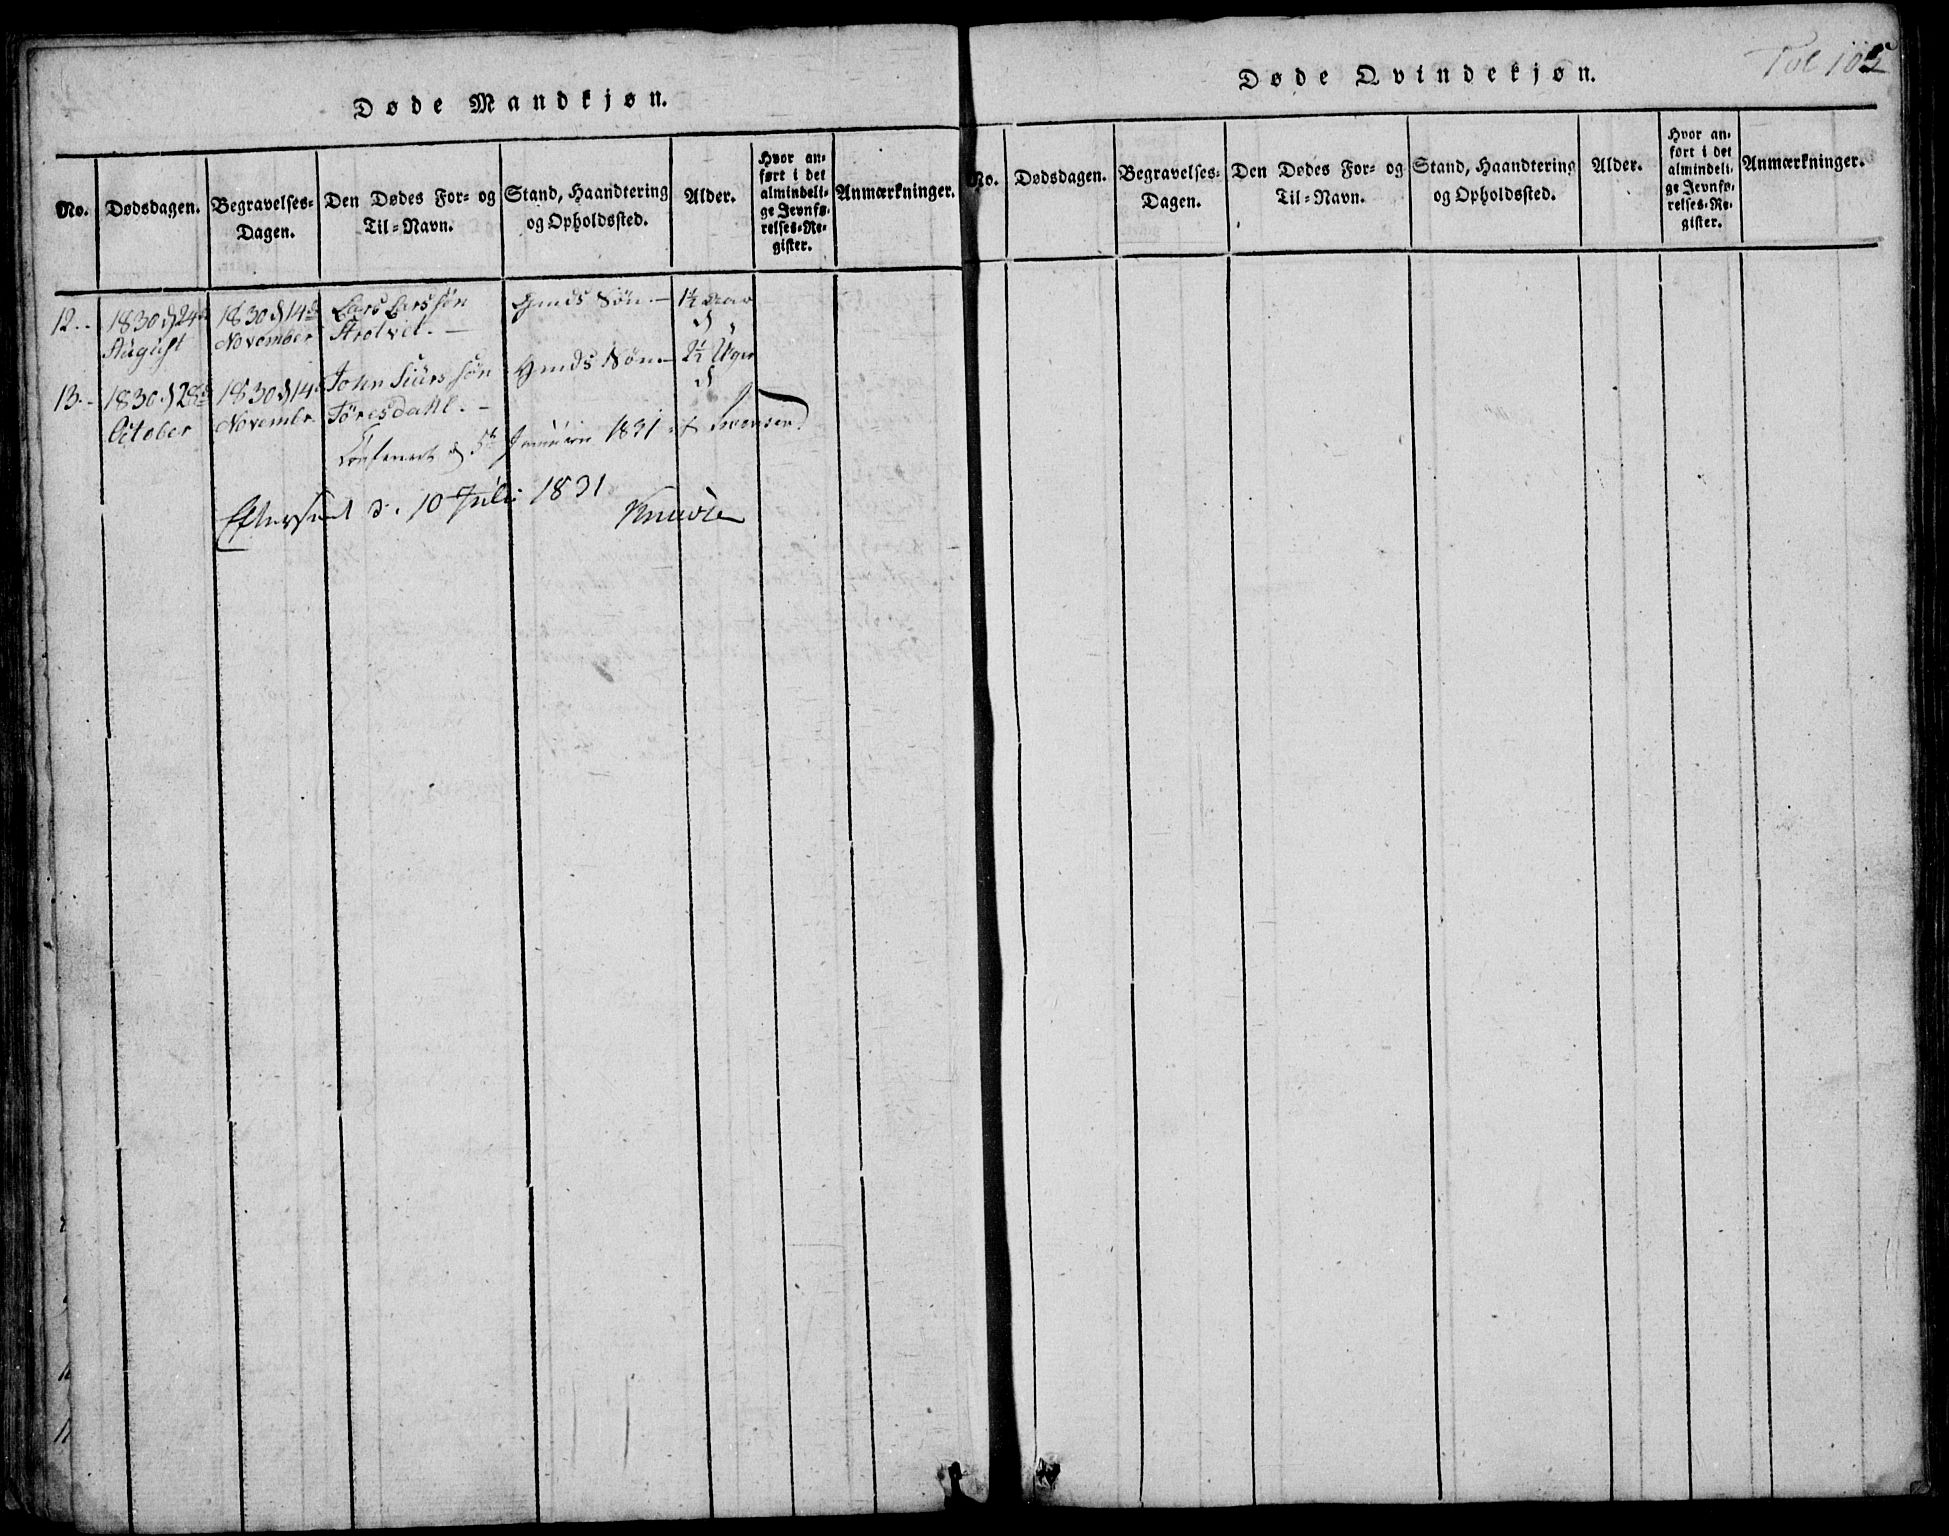 Døde Mandkjøn.
No.
Dødsdagen.
Begravelses-
Dagen.
Den Dødes For- og
Til-Navn.
Stand, Haandtering
og Opholdssted.
Alder.
Hvor an-
ført i det
almindeli-
ge Jevnfø-
relses-Re-
gister.
Anmærkninger.
12..
1830 d 24de
August
1830 d 14de
November
Lars Larssøn
Søn.
1½
13.-
1830 d 28de
October
1830 d 14de
Novembr
John Siurssøn
Søn
2½ Uger
Januar 1831
Eftersedt d. 10 Juli 1831
Døde Qvindekjøn.
Fol 105
No.
Dødsdagen.
Begravelses-
Dagen.
Den Dødes For- og
Til-Navn.
Stand, Haandtering
og Opholdssted.
Alder.
Hvor an-
ført i det
almindeli-
ge Jevnfø-
relses-Re-
gister.
Anmærkninger.